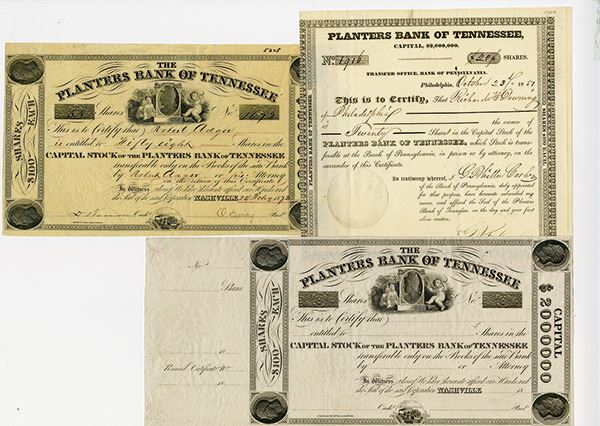 THE
PLANTERS BANK OF TENNESSEE
Shares No.
This is to Certify that Robert Ager
is entitled to Fifty eight Shares in the
CAPITAL STOCK OF THE PLANTERS BANK OF TENNESSEE
transferable only on the Books of the said Bank
by Robert Ager or his Attorney
on the return of this Certificate
In Witness whereof We have hereunto affixed our Hands and
the Seal of the said Corporation NASHVILLE
Cash.r Pres.t
SHARES $100 EACH
PLANTERS BANK OF TENNESSEE,
CAPITAL, $2,000,000.
No. 1916 $20 SHARES.
TRANSFER OFFICE, BANK OF PENNSYLVANIA.
Philadelphia, October 23d 1851
This is to Certify, That Richard H Downing
of Philadelphia
is the owner of
Twenty Shares in the Capital Stock of the
PLANTERS BANK OF TENNESSEE, which Stock is trans-
ferable at the Bank of Pennsylvania, in person or by attorney, on the
surrender of this Certificate.
In testimony whereof, I
of the Bank of Pennsylvania, duly appointed
for this purpose, have hereunto subscribed my
name, and affixed the Seal of the Planters
Bank of Tennessee, on the day and year first
above written.
PLANTERS BANK OF TENNESSEE
SHARES $100 EACH
No.
Shares
18
Received Certificate No.
18
SHARES $100 EACH
THE
PLANTERS BANK OF TENNESSEE
Shares No.
This is to Certify that
is entitled to Shares in the
CAPITAL STOCK OF THE PLANTERS BANK OF TENNESSEE
transferable only on the Books of the said Bank
by or Attorney
In Witness whereof We have hereunto affixed our Hands and
the Seal of the said Corporation NASHVILLE 18
Cash.r Pres.t
CAPITAL
$2000000